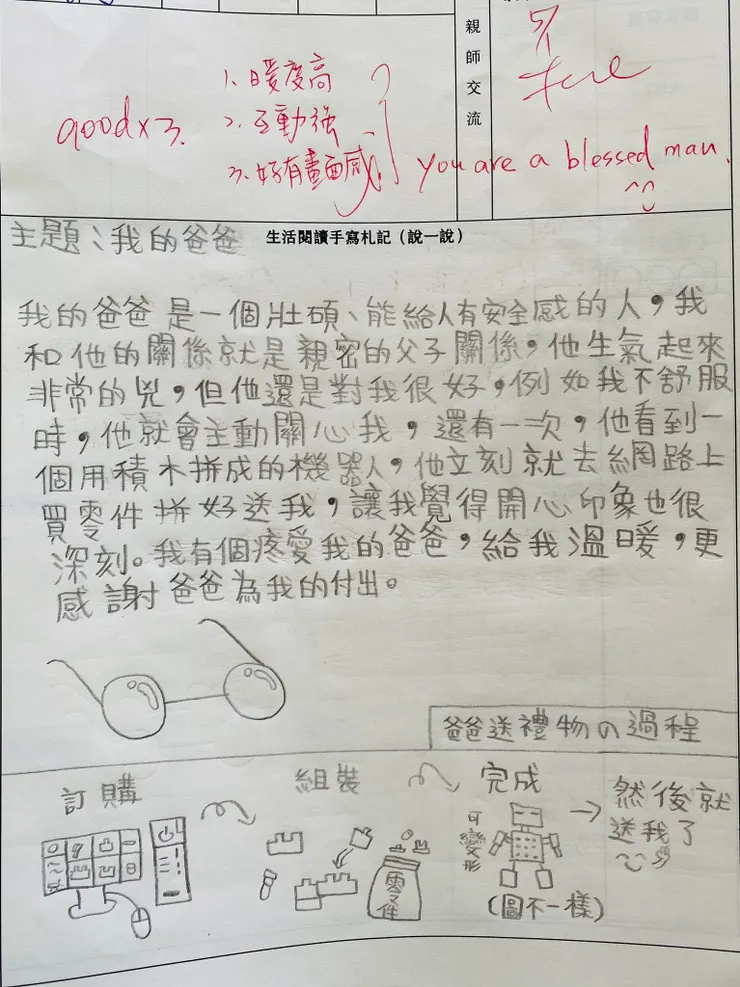 親師交流
good x 3.
1、暖度高
2、互動強
3、好有畫面感
you are a blessed man.
主題：我的爸爸
生活閱讀手寫札記（說一說）
我的爸爸是一個壯碩、能給人有安全感的人，我
和他的關係就是親密的父子關係，他生氣起來
非常的兇，但他還是對我很好，例如我不舒服
時，他就會主動關心我，還有一次，他看到一
個用積木拼成的機器人，他立刻就去網路上
買零件拼好送我，讓我覺得開心印象也很
深刻。我有個疼愛我的爸爸，給我溫暖，更
感謝爸爸為我的付出。
爸爸送禮物の過程
訂購
組裝
完成
然後就
送我了
可變形
零件
(圖不一樣)